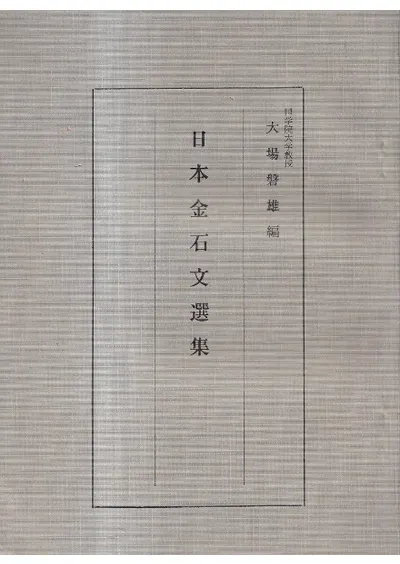 國学院大学教授
大場磐雄編
日本金石文選集